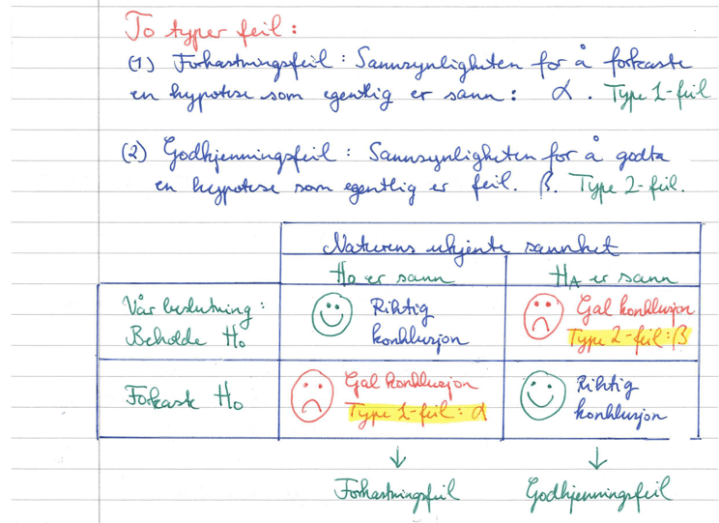 To typer feil:
(1) Forkastningsfeil: Sannsynligheten for å forkaste
en hypotese som egentlig er sann: α. Type 1-feil
(2) Godkjenningsfeil: Sannsynligheten for å godta
en hypotese som egentlig er feil. β. Type 2-feil.
Naturens ukjente sannhet
H0 er sann
HA er sann
Vår beslutning:
Beholde H0
Riktig
konklusjon
Gal konklusjon
Type 2-feil: β
Forkaste H0
Gal konklusjon
Type 1-feil: α
Riktig
konklusjon
Forkastningsfeil
Godkjenningsfeil